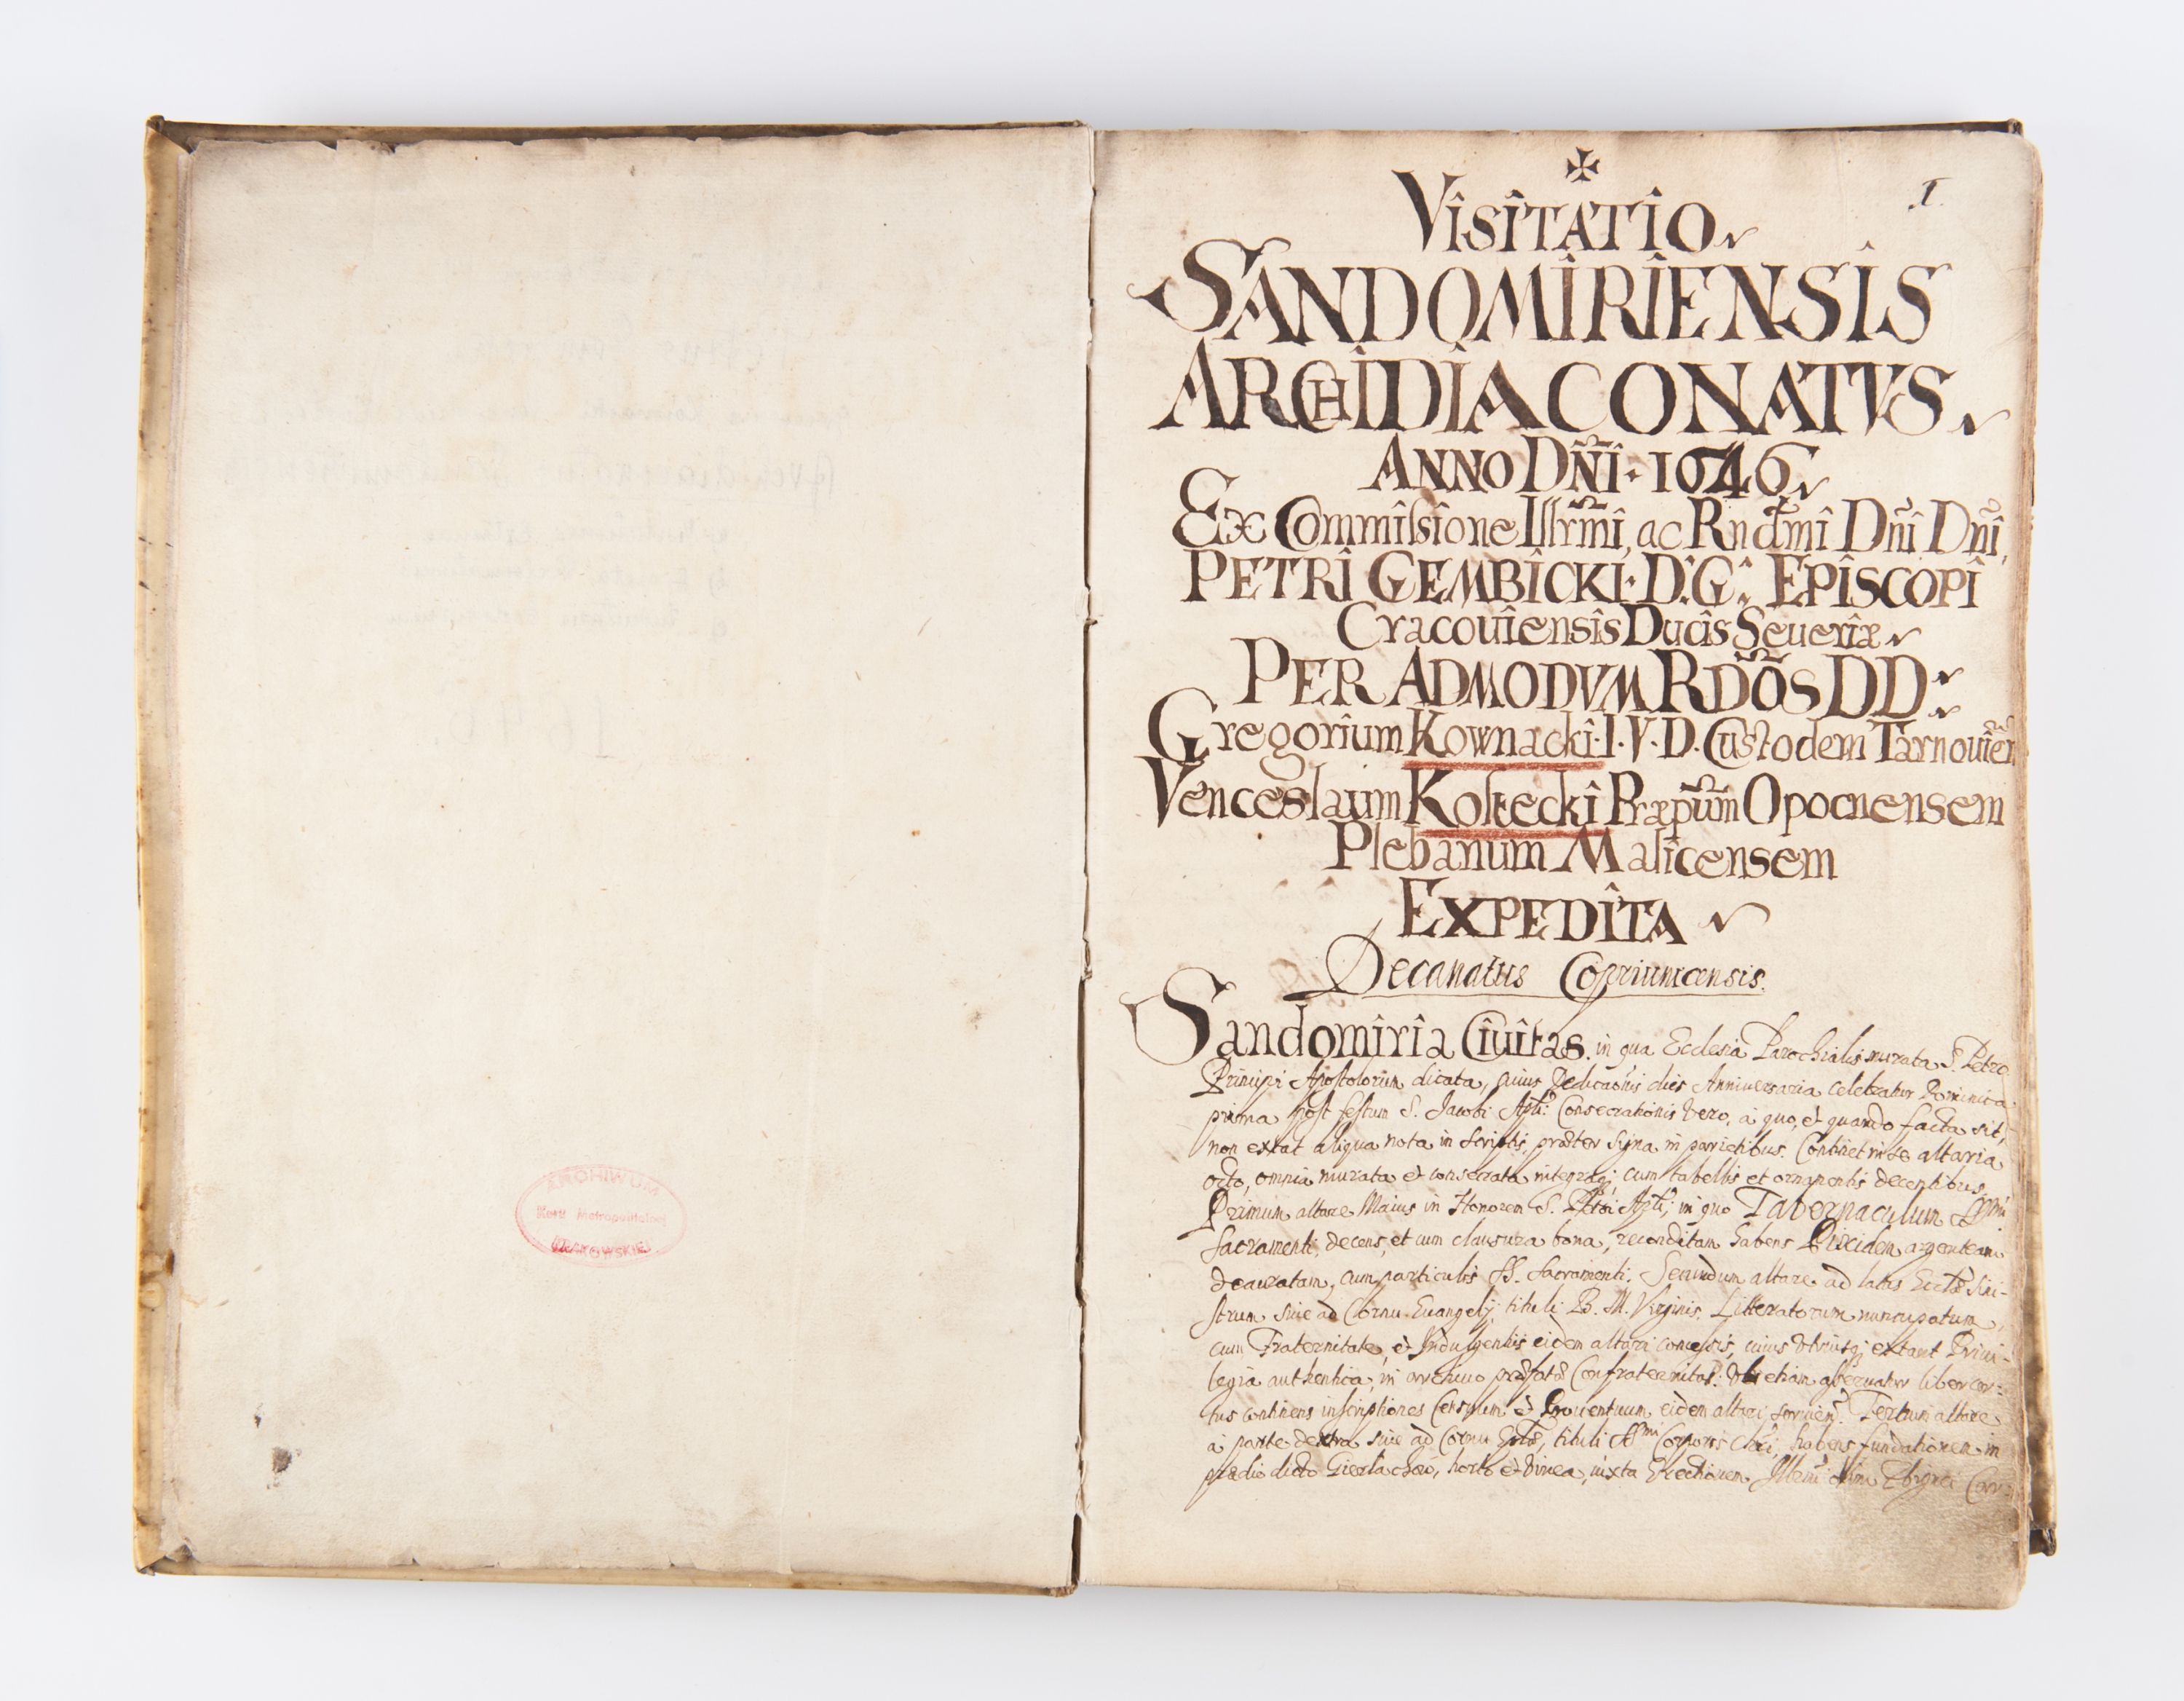 ARCHIWUM
Kurii Metropolitalnej
KRAKOWSKIEJ
1.
VISITATIO
SANDOMIRIENSIS
ARCHIDIACONATVS
ANNO Dñi. 1646
Ex Commissione Illrmi, ac Rndmi Dni Dni,
PETRI GEMBICKI. D. G. EPISCOPI
Cracouiensis Ducis Seueriæ
PER ADMODVM RDOS DD
Gregorium Kownacki. I. V. D. Custodem Tarnouien
Venceslaum Kostecki Præpum Opocnensem
Plebanum Malicensem
EXPEDITA
Decanatus Copriunicensis.
Sandomiria Ciuitas. in qua Ecclesia Parochialis murata S. Petro
Principi Apostolorum dicata, cuius Dedicaonis dies Anniuersaria celebratur Dominica
prima post festum S. Jacobi Apli: Consecrationis vero, à quo, et quando facta sit,
non extat aliqua nota in scriptis, præter signa in parietibus. Continet in se altaria
octo, omnia murata et consecrata integraq; cum tabellis et ornamentis decentibus.
Primum altare Maius in Honorem S. Petri Apli, in quo Tabernaculum SSmi
Sacramenti, decens, et cum clausura bona, reconditam habens Pixidem argenteam
deauratam, cum particulis SS. Sacramenti. Secundum altare ad latus Eccliæ Sini-
strum siue ad Cornu Euangelij tituli B. M. Virginis, Litteratorum nuncupatum,
cum Fraternitate, et Indulgentiis eidem altari concessis, cuius vtriusq; extant Priui-
legia authentica, in archiuo præfatæ Confraternitat: vbi etiam asseruatur liber cer-
tus continens inscriptiones Censuum et Prouentuum eidem altari seruien. Tertium altare
à parte dextra siue ad Cornu Eplæ, tituli SSmi Corporis Chri, habens fundationem in
prædio dicto Gierlachow, horto et vinea, iuxta Erectionem Illrmi olim Zbignei Car-